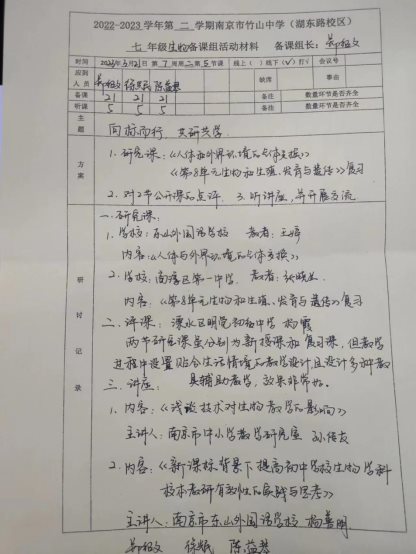 2022-2023学年第 二 学期南京市竹山中学(湖东路校区)
七 年级生物备课组活动材料 备课组长:
时间 2023年3月21日 第7周周二第5节课 线上( ) 线下(√)打√ 会议号
应到人员 缺席 事由
备课 21 21 21 备注 数量环节是否齐全
听课 5 5 5 备注 数量环节是否齐全
主题 同标而行,共研共学
方案 1. 研究课:《人体和外界环境的气体交换》
《第8单元生物的生殖、发育与遗传》复习
2. 对2节公开课的点评. 3. 听讲座,并开展交流
研讨记录
一. 研究课:
1. 学校:东山外国语学校 教者:王婷
内容:《人体与外界环境的气体交换》
2. 学校:高淳区第一中学. 教者:张晓
内容:《第8单元生物的生殖、发育与遗传》复习
二. 评课:溧水区明觉初级中学 杨霞
两节研究课虽分别为新授课和复习课,但教学
过程中设置贴合生活情境的教学设计,且设计多种教
具辅助教学,效果非常好。
三. 讲座:
1. 内容:《浅谈技术对生物教学的影响》
主讲人:南京市中小学教学研究室 孙
2. 内容:《新课标背景下提高初中学校生物学科
校本教研有效性的实践与思考》
主讲人:南京市东山外国语学校 杨善明
徐 陈益琴